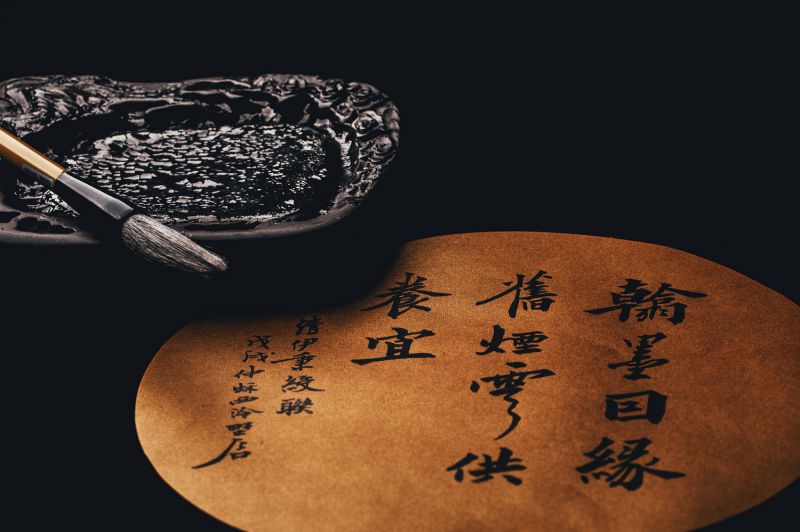 翰墨因緣
舊煙雲供
養宜
清伊秉綬聯
戊戌仲西泠居